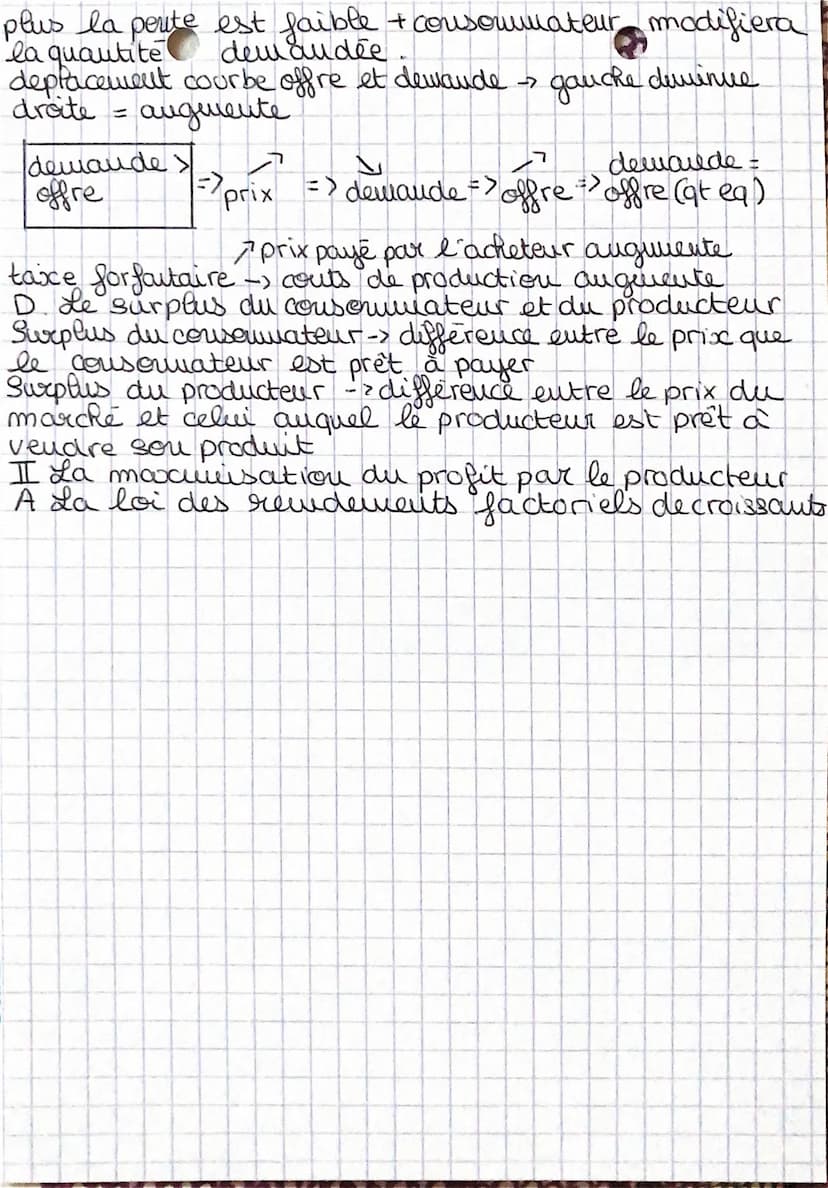 plus la pente est faible + consommateur modifiera
la quantité demandée.
deplacement courbe offre et demande → gauche diminue
droite = augmente
demande >
offre
=> prix ↗ => demande ↘ => offre ↗ => demande =
offre (qt eq)
↗ prix payé par l'acheteur augmente
taxe forfaitaire -> couts de production augmente
D. Le surplus du consommateur et du producteur
Surplus du consommateur -> différence entre le prix que
le consommateur est prêt à payer
Surplus du producteur -> différence entre le prix du
marché et celui auquel le producteur est prêt à
vendre son produit
II La maximisation du profit par le producteur
A La loi des rendements factoriels decroissants